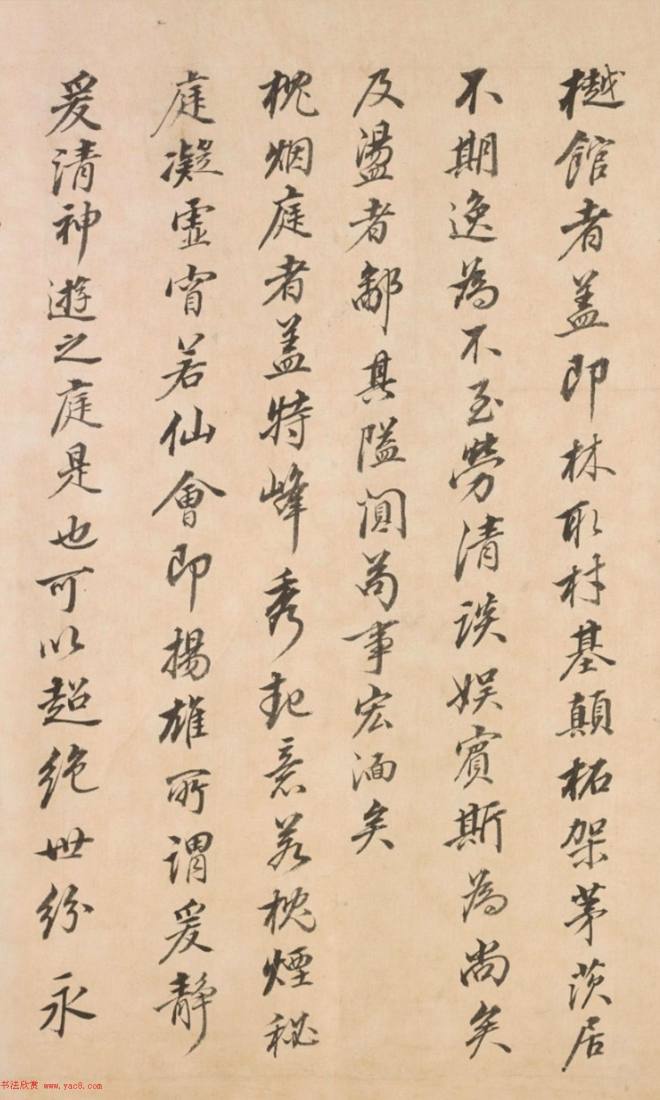 樾館者盖即林取材基顛柘架茅茨居
不期逸為不至勞清談娱賓斯為尚矣
及盪者鄙其隘闃苟事宏湎矣
枕烟庭者盖特峰秀起意若枕煙秘
庭凝虛窅若仙會即揚雄所謂爰静
爰清神遊之庭是也可以超絶世紛永
书法欣赏 www.yac8.com